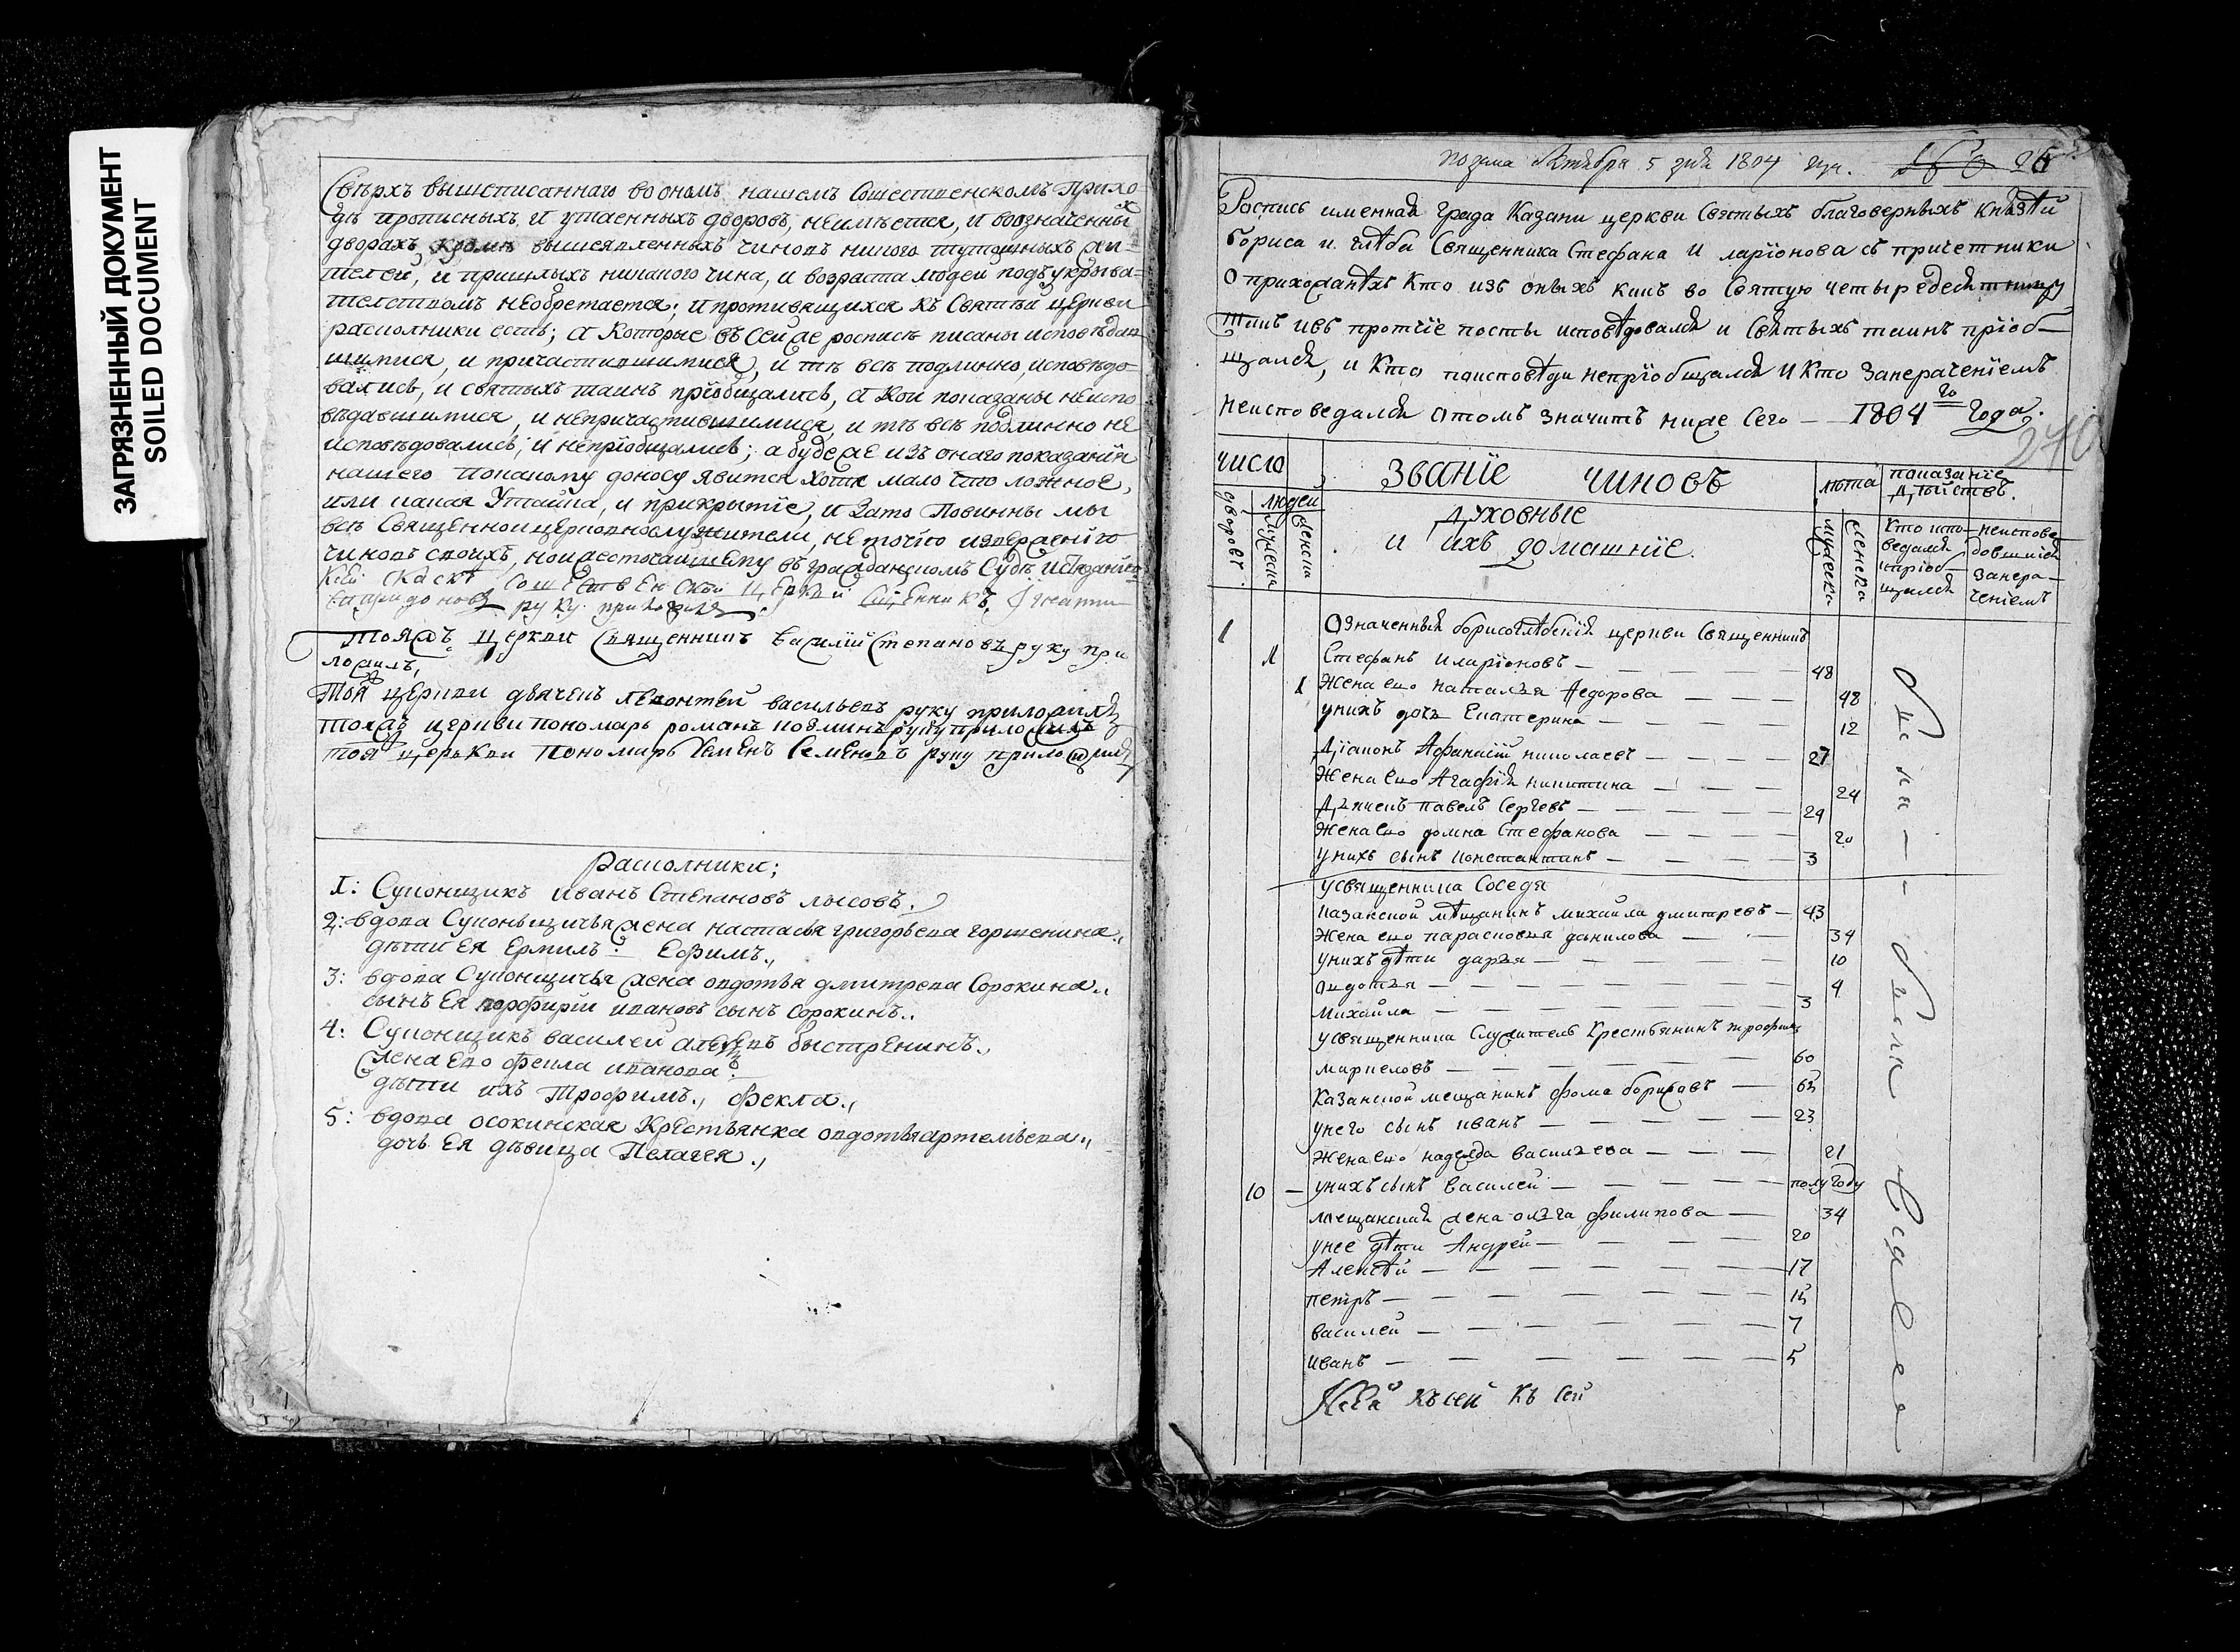 ЗАГРЯЗНЕННЫЙ ДОКУМЕНТ
SOILED DOCUMENT
Сверхъ вышеписаннаго во ономъ нашемъ Сошественскомъ Прихо-
дѣ прописныхъ и утаенныхъ дворовъ, неимѣется, и вобозначенны
дворахъ кромѣ вышеявленныхъ чиновъ никого тутошныхъ жи-
телей, и пришлыхъ никакого чина, и возраста людей подъ укрыва-
телствомъ необретается; и противящихся къ Святѣй церкви
расколники есть; а Которые въ Сей же росписѣ писаны исповѣдав
шимися, и причастившимися, и тѣ всѣ подлинно, исповѣдо
вались, и святыхъ таинъ прїобщались, а Кои показаны неиспо
вѣдавшимися, и непричастившимися, и тѣ всѣ подлинно не
исповѣдовались, и непрїобщались; а буде же изъ онаго показанїя
нашего покакому доносу явится хотя мало что ложное,
или какая Утайка, и прикрытїе, и Зато Повинны мы
всѣ Священноицерковнослужители, неточїю извержению
чиновъ своихъ, ноижесточайшему въ гражданскомъ Судѣ истязанїю
Кѣй скаскѣ Сошественской церкви Сщенникъ Игнати
Спиридоновъ руку приложилъ
тояжъ церкви Священникъ Василїй Степановъ руку при
ложилъ,
Той церкви дьячекъ леонтей васильевъ руку приложилъ
тояжъ церкви пономарь романъ козминъ руку приложилъ
тоя церькви пономарь Семенъ Семеновъ руку приложилъ
Расколники;
1: Суконщикъ иванъ Степановъ лысовъ.
2: вдова Суконьщичья жена настасья григорьева горшенина.,
дѣти ея Ермилъ: Ефимъ.,
3: вдова Суконщичья жена овдотья дмитрева Сорокина.,
сынъ ея порфирїй ивановъ сынъ Сорокинъ.,
4: Суконщикъ василей быстренинъ.,
жена Ево фекла иванова:
дѣти ихъ Трофимъ., Фекла.,
5: вдова осокинская Крестьянка овдотья артемьева.,
дочь ея дѣвица Пелагея.,
подана Октября 5 дня 1804 года. 26
Роспись именная града Казани церкви Святыхъ благоверныхъ Князѣй
бориса и глѣба Священника Стефана Иларїонова съ причетники
О прихожанѣхъ Кто изъ оныхъ какъ во Святую четыредесятницу
такъ ивъ протчїе посты исповѣдовался и Святыхъ таинъ прїоб-
щался, и Кто поисповѣди непрїобщался И Кто Занераченїемъ
неисповедался Отомъ значитъ ниже Сего — 1804го Года.
270
число
званїе чиновъ
лѣта
показанїе дѣйствъ.
дворовъ
людей
мужеска
женска
духовные
и ихъ домашнїе.
мужеска
женска
Кто испо-
ведался
ипрїоб-
щался
неисповедовшися
Занера-
ченїемъ
1
Означенныя борисоглѣбскїя церкви Священникъ
1 Стефанъ Иларїоновъ — 48
1 Жена ево наталья Ѳедорова — 48
унихъ дочь Екатерина — 12
Дїаконъ Афанасїй николаевъ — 27
Жена ево Агафїя никитина — 24
Дьячекъ павелъ Сергѣевъ — 29
Жена ево домна Стефанова — 20
унихъ сынъ Константинъ — 3
Усвященника Соседя
казанской мѣщанинъ михайла дмитревъ — 43
Жена ево парасковья данилова — 34
унихъ дѣти дарья — 10
авдотья — 4
михайла — 3
Усвященника Служитель Крестьянинъ трофимъ
маркеловъ — 60
Казанской мещанинъ фома борисовъ — 65
унего сынъ иванъ — 23
Жена ево надежда васильева — 21
10 — унихъ сынъ василей — полугоду
мещанская жена олга филипова — 34
унее дѣти Андрей — 20
Алексѣй — 17
петръ — 15
василей — 7
иванъ — 5
Къ сей Къ Сей